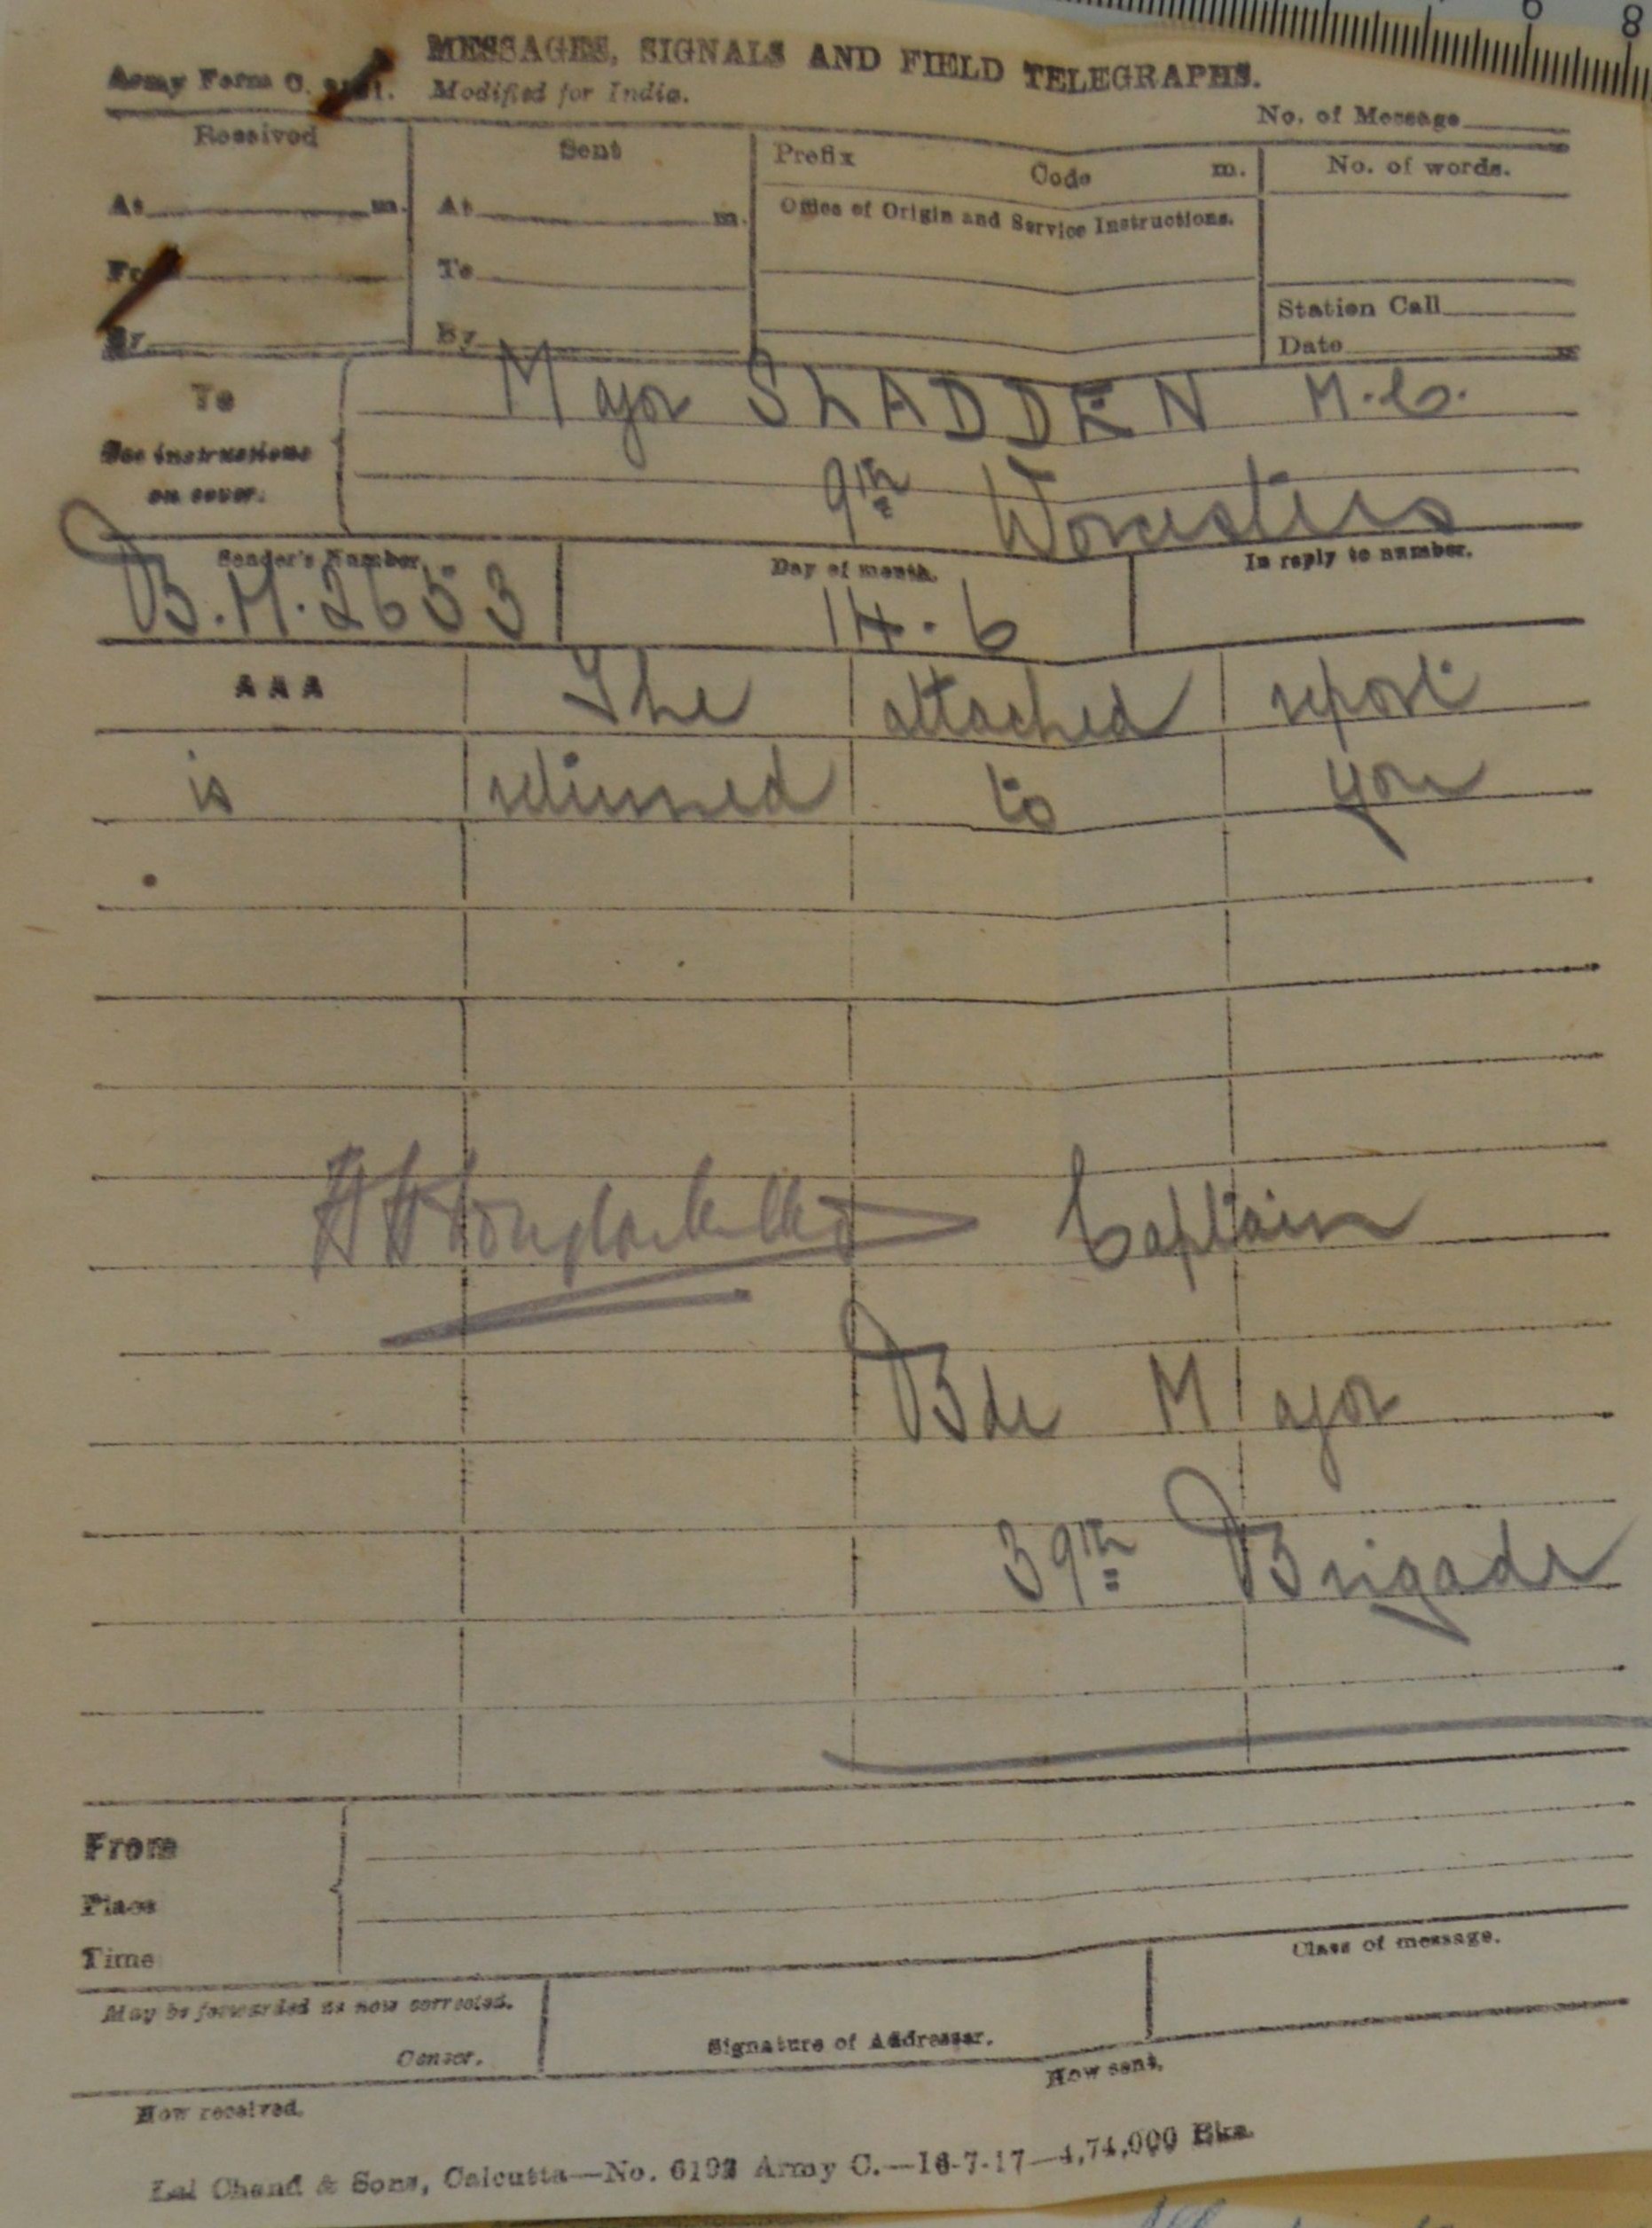 MESSAGES, SIGNALS AND FIELD TELEGRAPHS.
Army Form C.
Modified for India.
No. of Message
Received
Sent
Prefix Code m.
No. of words.
At m.
At m.
Office of Origin and Service Instructions.
From
To
By
By
Station Call
Date
To
See instructions
on cover.
Major SLADDEN M.C.
9th Worcesters
Sender's Number.
Day of month.
In reply to number.
B.M. 2653
14.6
AAA The attached report
is returned to you
Captain
Bde Major
39th Brigade
From
Place
Time
May be forwarded as now corrected.
Censor.
Signature of Addressor.
Class of message.
How received.
How sent.
Lal Chand & Sons, Calcutta—No. Army C.—16-7-17—4,74,000 Bks.